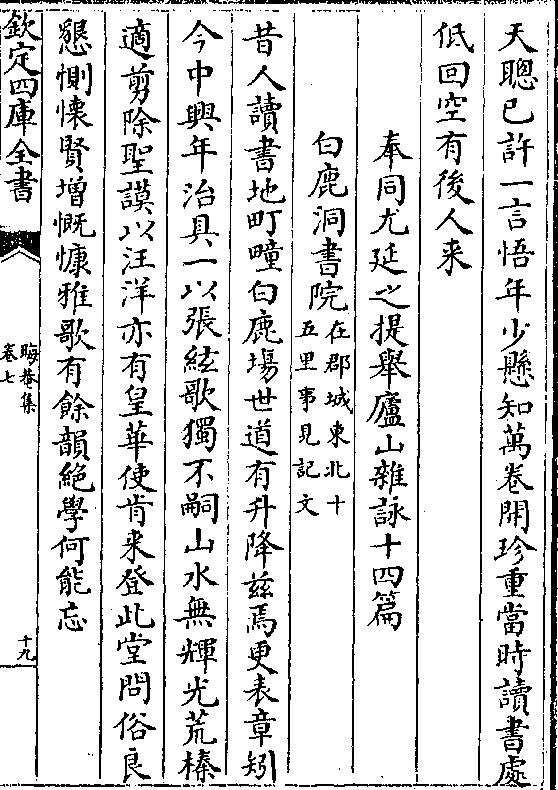 天聰已許一言悟年少懸知萬卷開珍重當時讀書處
低回空有後人来
奉同尤延之提舉廬山雜詠十四篇
白鹿洞書院在郡城東北十
五里事見記文
昔人讀書地町疃白鹿場世道有升降兹焉更表章矧
今中興年治具一以張絃歌獨不嗣山水無輝光荒榛
適剪除聖謨以汪洋亦有皇華使肯来登此堂問俗良
懇惻懐賢増慨慷雅歌有餘韻絶學何能忘
欽定四庫全書
晦菴集
卷七
十九